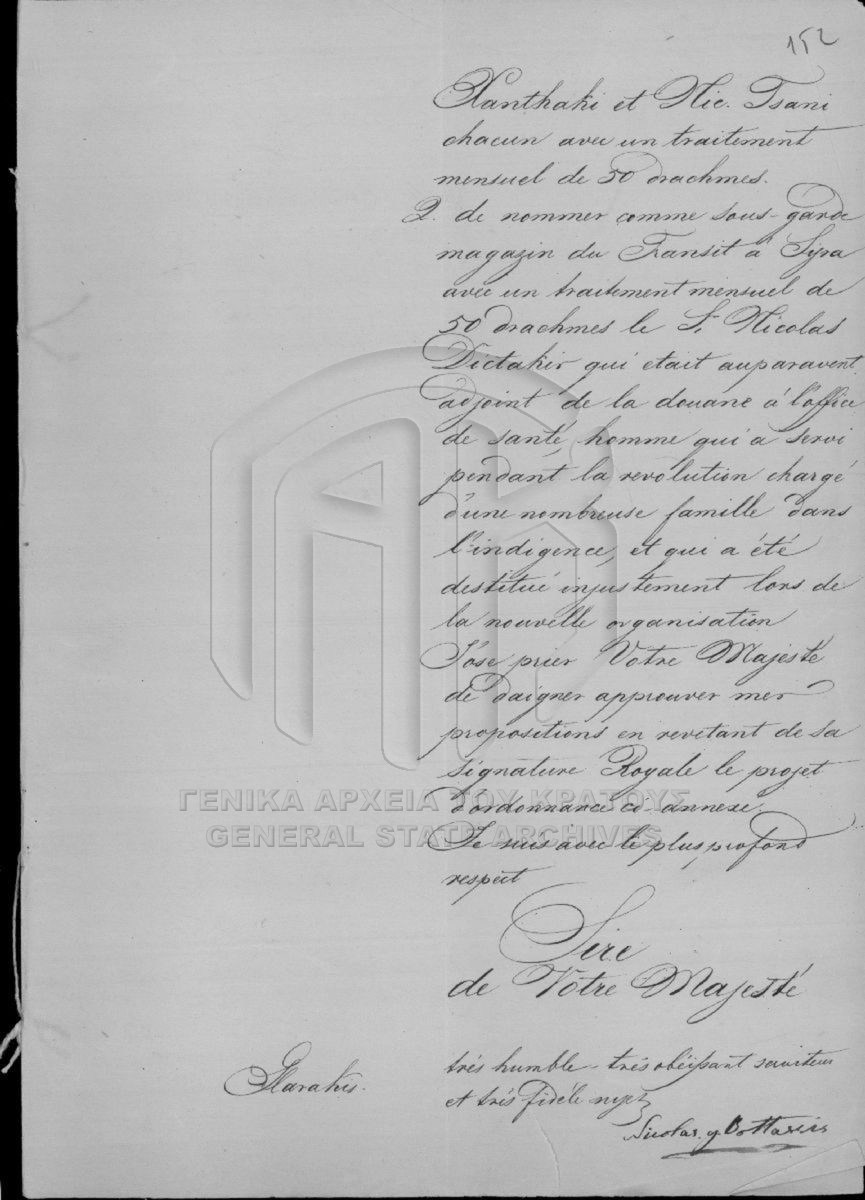 152
Xanthaki et Nic. Tsani
chacun avec un traitement
mensuel de 50 drachmes.
2. de nommer comme sous-garde
magazin du Transit à Syra
avec un traitement mensuel de
50 drachmes le Sr. Nicolas
Dictakis qui etait auparavent
adjoint de la douane à l'office
de santé, homme qui a servi
pendant la revolution chargé
d'une nombreuse famille dans
l'indigence, et qui a été
destitué injustement lors de
la nouvelle organisation
J'ose prier Votre Majesté
de daigner approuver mes
propositions en revetant de sa
signature Royale le projet
d'ordonnance ci annexe.
Je suis avec le plus profond
respect
Sire
de Votre Majesté
très humble - très obéissant serviteur
et très fidèle sujet
Glarakis.
Nicolas G Bottasis
ΓΕΝΙΚΑ ΑΡΧΕΙΑ ΤΟΥ ΚΡΑΤΟΥΣ
GENERAL STATE ARCHIVES